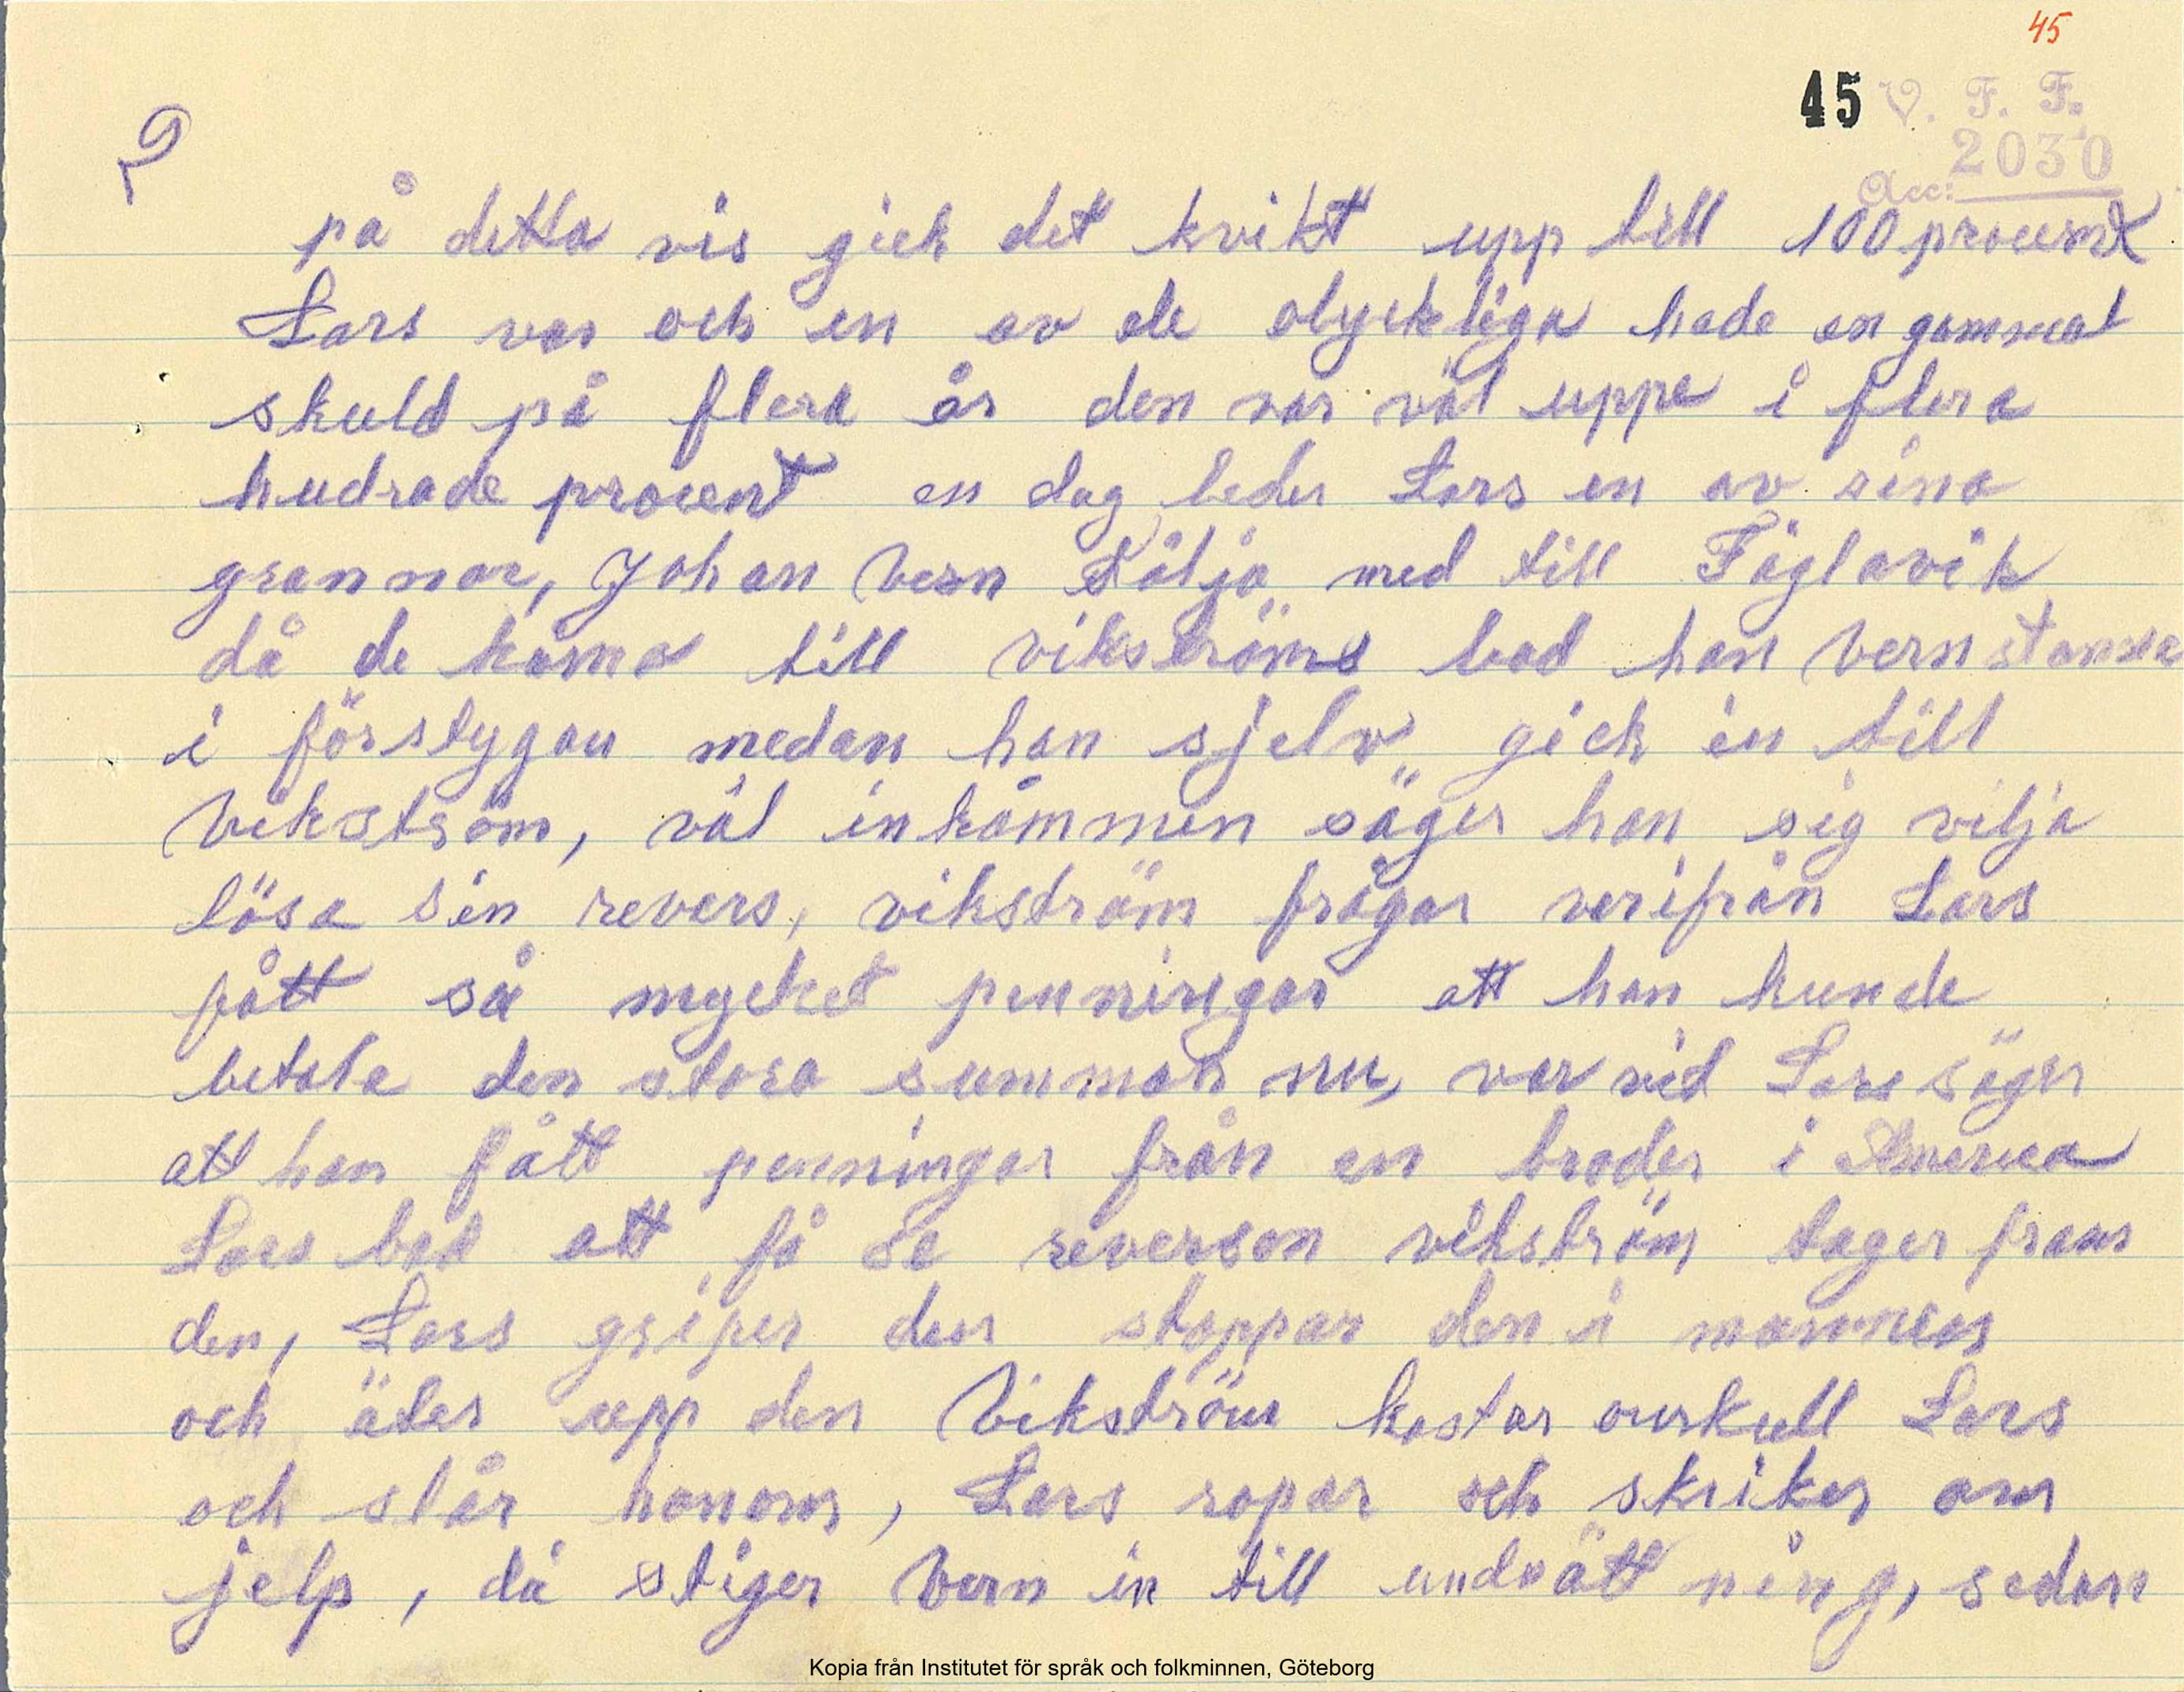 45
45 V. F. F.
2030
Acc:
9
på detta vis gick det kvikt upp till 100 procent
Lars var och en av de olyckliga hade en gammal
skuld på flera år den var väl uppe i flera
hudrade procent en dag beder Lars en av sina
grannar, Johan Vern följa med till Fåglavik
då de komo till vikströms bad han Vern stanna
i förstygan medan han sjelv gick in till
Vikström, väl inkommen säger han sig vilja
lösa sin revers, vikström frågar verifrån Lars
fått så mycket penningar att han kunde
betala den stora summan nu, var vid Lars säger
att han fått penningar från en broder i America
Lars bad att få se reversen vikström tager fram
den, Lars griper den stoppar den i munnen
och äter upp den Vikström kastar omkull Lars
och slår honom, Lars ropar och skriker om
jelp, då stiger Vern in till undsättning, sedan
Kopia från Institutet för språk och folkminnen, Göteborg